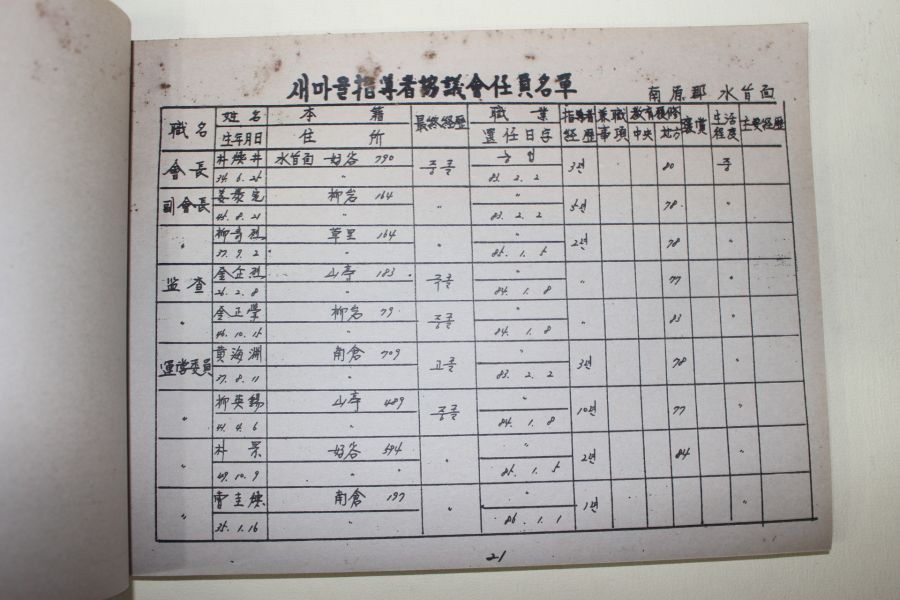 새마을指導者協議會任員名單
南原郡 水旨面
職名 姓名 本籍 最終経歴 職業 指導者経歴 兼職事項 教育履修 褒賞 生活程度 主要経歴
生年月日 住所 選任日字 中央 地方
會長 朴 井 水旨面 好谷 790 중졸 농업 3년 80 중
34. 6. 25 〃 83. 2. 2
副會長 姜 柳岩 164 〃 〃 5년 78 〃
45. 8. 21 〃 83. 2. 2
〃 柳 烈 草里 164 〃 〃 2년 78 〃
37. 9. 2 〃 85. 1. 5
监查 金 烈 山亭 183 국졸 〃 〃 77 〃
26. 2. 8 〃 84. 1. 8
〃 金正學 柳岩 79 중졸 〃 〃 83 〃
46. 10. 15 〃 84. 1. 8
運営委員 黄海淵 南倉 709 고졸 〃 3년 78 〃
37. 8. 11 〃 83. 2. 2
〃 柳英錫 山亭 489 중졸 〃 10년 77 〃
41. 4. 6 〃 84. 1. 8
〃 朴 好谷 594 〃 〃 2년 84 〃
49. 10. 9 〃 〃 85. 1. 5
〃 曺圭 南倉 197 〃 〃 1년 〃
35. 1. 16 〃 86. 1. 1
21